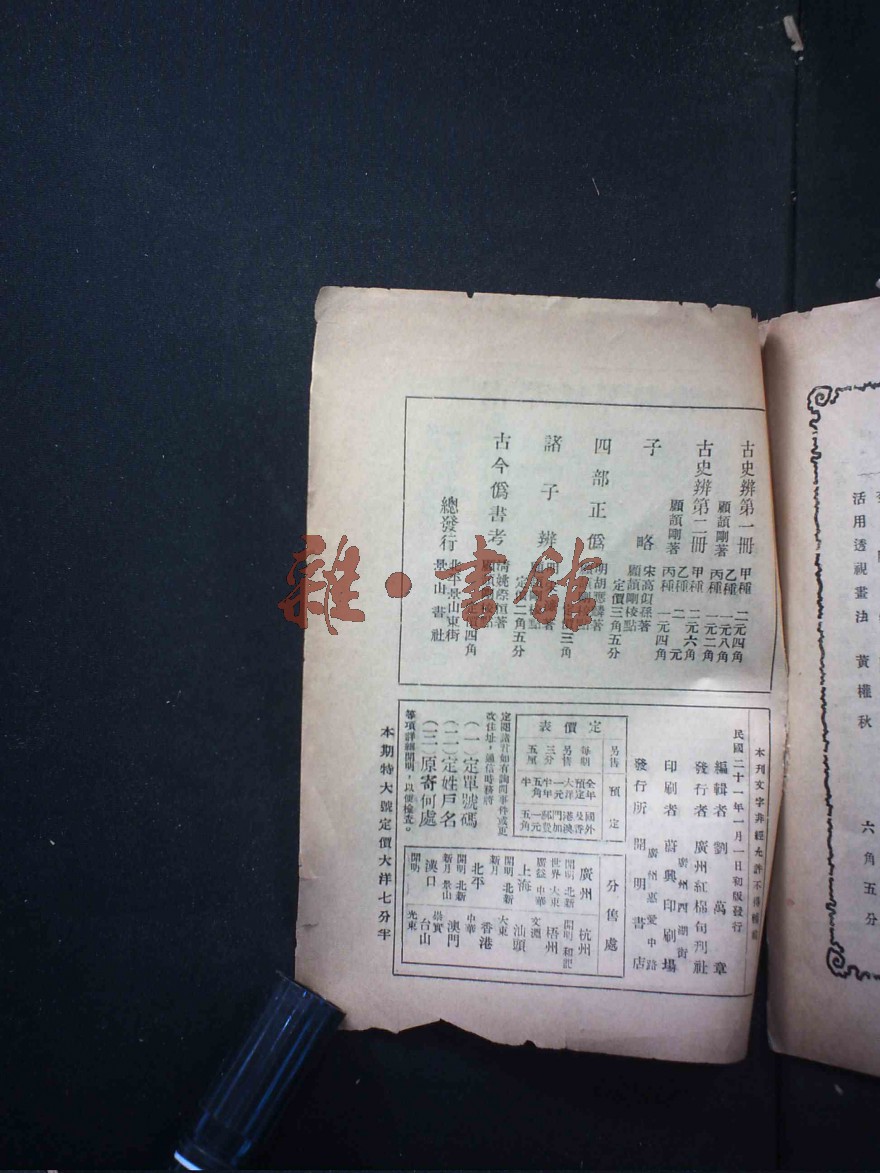 古史辨第一冊 甲種 二元四角
顧頡剛著 乙種 一元八角
丙種 一元二角
古史辨第二冊 甲種 二元六角
顧頡剛著 乙種 二元
丙種 一元四角
子略 宋高似孫著
顧頡剛校點
定價三角五分
四部正僞 明胡應麟著
三角
諸子辨
定價二角五分
古今僞書考 清姚際恒著
四角
總發行 北平景山東街
景山書社
本刊文字非經允許不得轉載
民國二十一年一月一日初版發行
編輯者 劉萬章
發行者 廣州紅棉旬刊社
廣州西湖街
印刷者 蔚興印刷場
廣州惠愛中路
發行所 開明書店
定價表
另售 預定
每期 全年 國外
另售 預定 及香
三分 大洋 港澳
五厘 一元 門加
半年 郵費
五角 一元
半 五角
定閱諸君如有詢問事件或更
改住址，通信時務將
（一）定單號碼
（二）定姓戶名
（三）原寄何處
等項詳細開明，以便檢查。
分售處
廣州 開明 北新 世界 大東 廣益 中華
杭州 開明
梧州 文淵
上海 開明 北新 新月
汕頭 大東
北平 開明 北新 新月 景山
香港 中華
澳門 崇實
漢口 開明
台山 光東
本期特大號定價大洋七分半
活用透視畫法 黃權秋
六角五分
雜·書館